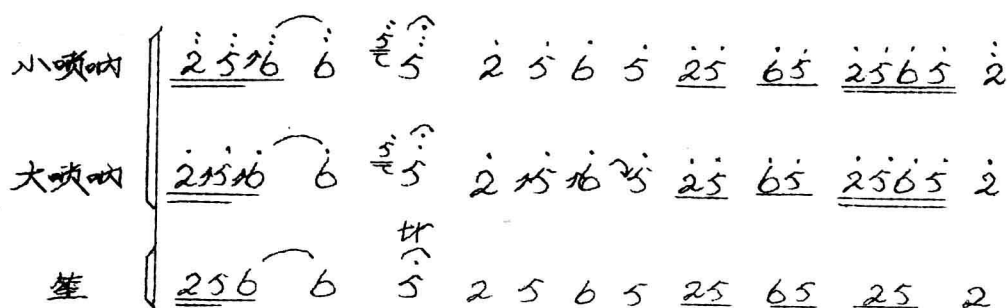 小唢呐 2 5 6 6 5 5 2 5 6 5 25 65 2565 2
大唢呐 2 5 6 6 5 5 2 5 6 5 25 65 2565 2
tr
笙 2 5 6 6 5 2 5 6 5 25 65 25 2